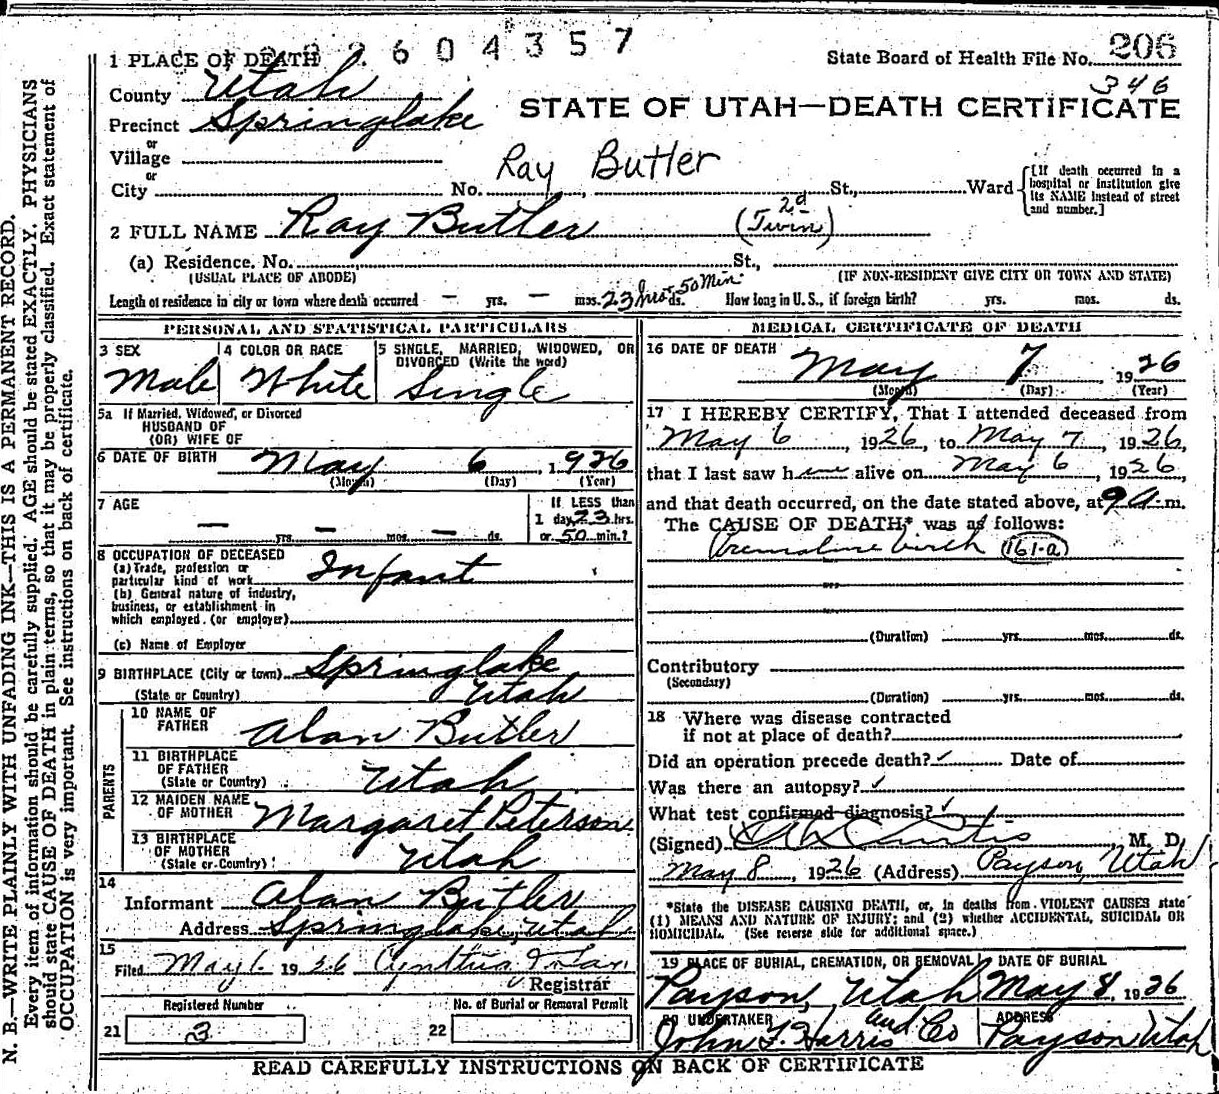 2604357
1 PLACE OF DEATH
State Board of Health File No. 206
346
County Utah
STATE OF UTAH—DEATH CERTIFICATE
Precinct Springlake
or
Village
or
Ray Butler
City No. St., Ward
[If death occurred in a
hospital or institution give
its NAME instead of street
and number.]
2 FULL NAME Ray Butler (2d Twin)
(a) Residence. No. St.,
(USUAL PLACE OF ABODE) (IF NON-RESIDENT GIVE CITY OR TOWN AND STATE)
Length of residence in city or town where death occurred — yrs. — mos. 23 hrs. 50 Min. ds. How long in U. S., if foreign birth? yrs. mos. ds.
PERSONAL AND STATISTICAL PARTICULARS
3 SEX
Male
4 COLOR OR RACE
White
5 SINGLE, MARRIED, WIDOWED, OR
DIVORCED (Write the word)
Single
5a If Married, Widowed, or Divorced
HUSBAND OF
(OR) WIFE OF
6 DATE OF BIRTH May 6, 1926
(Month) (Day) (Year)
7 AGE
— yrs. — mos. — ds.
If LESS than
1 day, 23 hrs.
or 50 min.?
8 OCCUPATION OF DECEASED
(a) Trade, profession or
particular kind of work Infant
(b) General nature of industry,
business, or establishment in
which employed (or employer)
(c) Name of Employer
9 BIRTHPLACE (City or town) Springlake
(State or Country) Utah
PARENTS
10 NAME OF
FATHER Alan Butler
11 BIRTHPLACE
OF FATHER
(State or Country) Utah
12 MAIDEN NAME
OF MOTHER Margaret Peterson
13 BIRTHPLACE
OF MOTHER
(State or Country) Utah
14
Informant Alan Butler
Address Springlake, Utah
15
Filed May 1926 Cynthia
Registrar
Registered Number
21 3
No. of Burial or Removal Permit
22
MEDICAL CERTIFICATE OF DEATH
16 DATE OF DEATH May 7 1926
(Month) (Day) (Year)
17 I HEREBY CERTIFY, That I attended deceased from
May 6, 1926, to May 7, 1926,
that I last saw h alive on May 6, 1926,
and that death occurred, on the date stated above, at 9 a. m.
The CAUSE OF DEATH* was as follows:
Premature birth (161-a)
(Duration) yrs. mos. ds.
Contributory
(Secondary)
(Duration) yrs. mos. ds.
18 Where was disease contracted
if not at place of death?
Did an operation precede death? ✓ Date of
Was there an autopsy? ✓
What test confirmed diagnosis? ✓
(Signed) Curtis M. D.
May 8, 1926 (Address) Payson, Utah
*State the DISEASE CAUSING DEATH, or, in deaths from VIOLENT CAUSES state
(1) MEANS AND NATURE OF INJURY; and (2) whether ACCIDENTAL, SUICIDAL OR
HOMICIDAL. (See reverse side for additional space.)
19 PLACE OF BURIAL, CREMATION, OR REMOVAL
Payson, Utah
DATE OF BURIAL
May 8, 1926
20 UNDERTAKER
John F. Harris and Co
ADDRESS
Payson Utah
READ CAREFULLY INSTRUCTIONS ON BACK OF CERTIFICATE
N. B.—WRITE PLAINLY WITH UNFADING INK—THIS IS A PERMANENT RECORD.
Every item of information should be carefully supplied. AGE should be stated EXACTLY. PHYSICIANS
should state CAUSE OF DEATH in plain terms, so that it may be properly classified. Exact statement of
OCCUPATION is very important. See instructions on back of certificate.